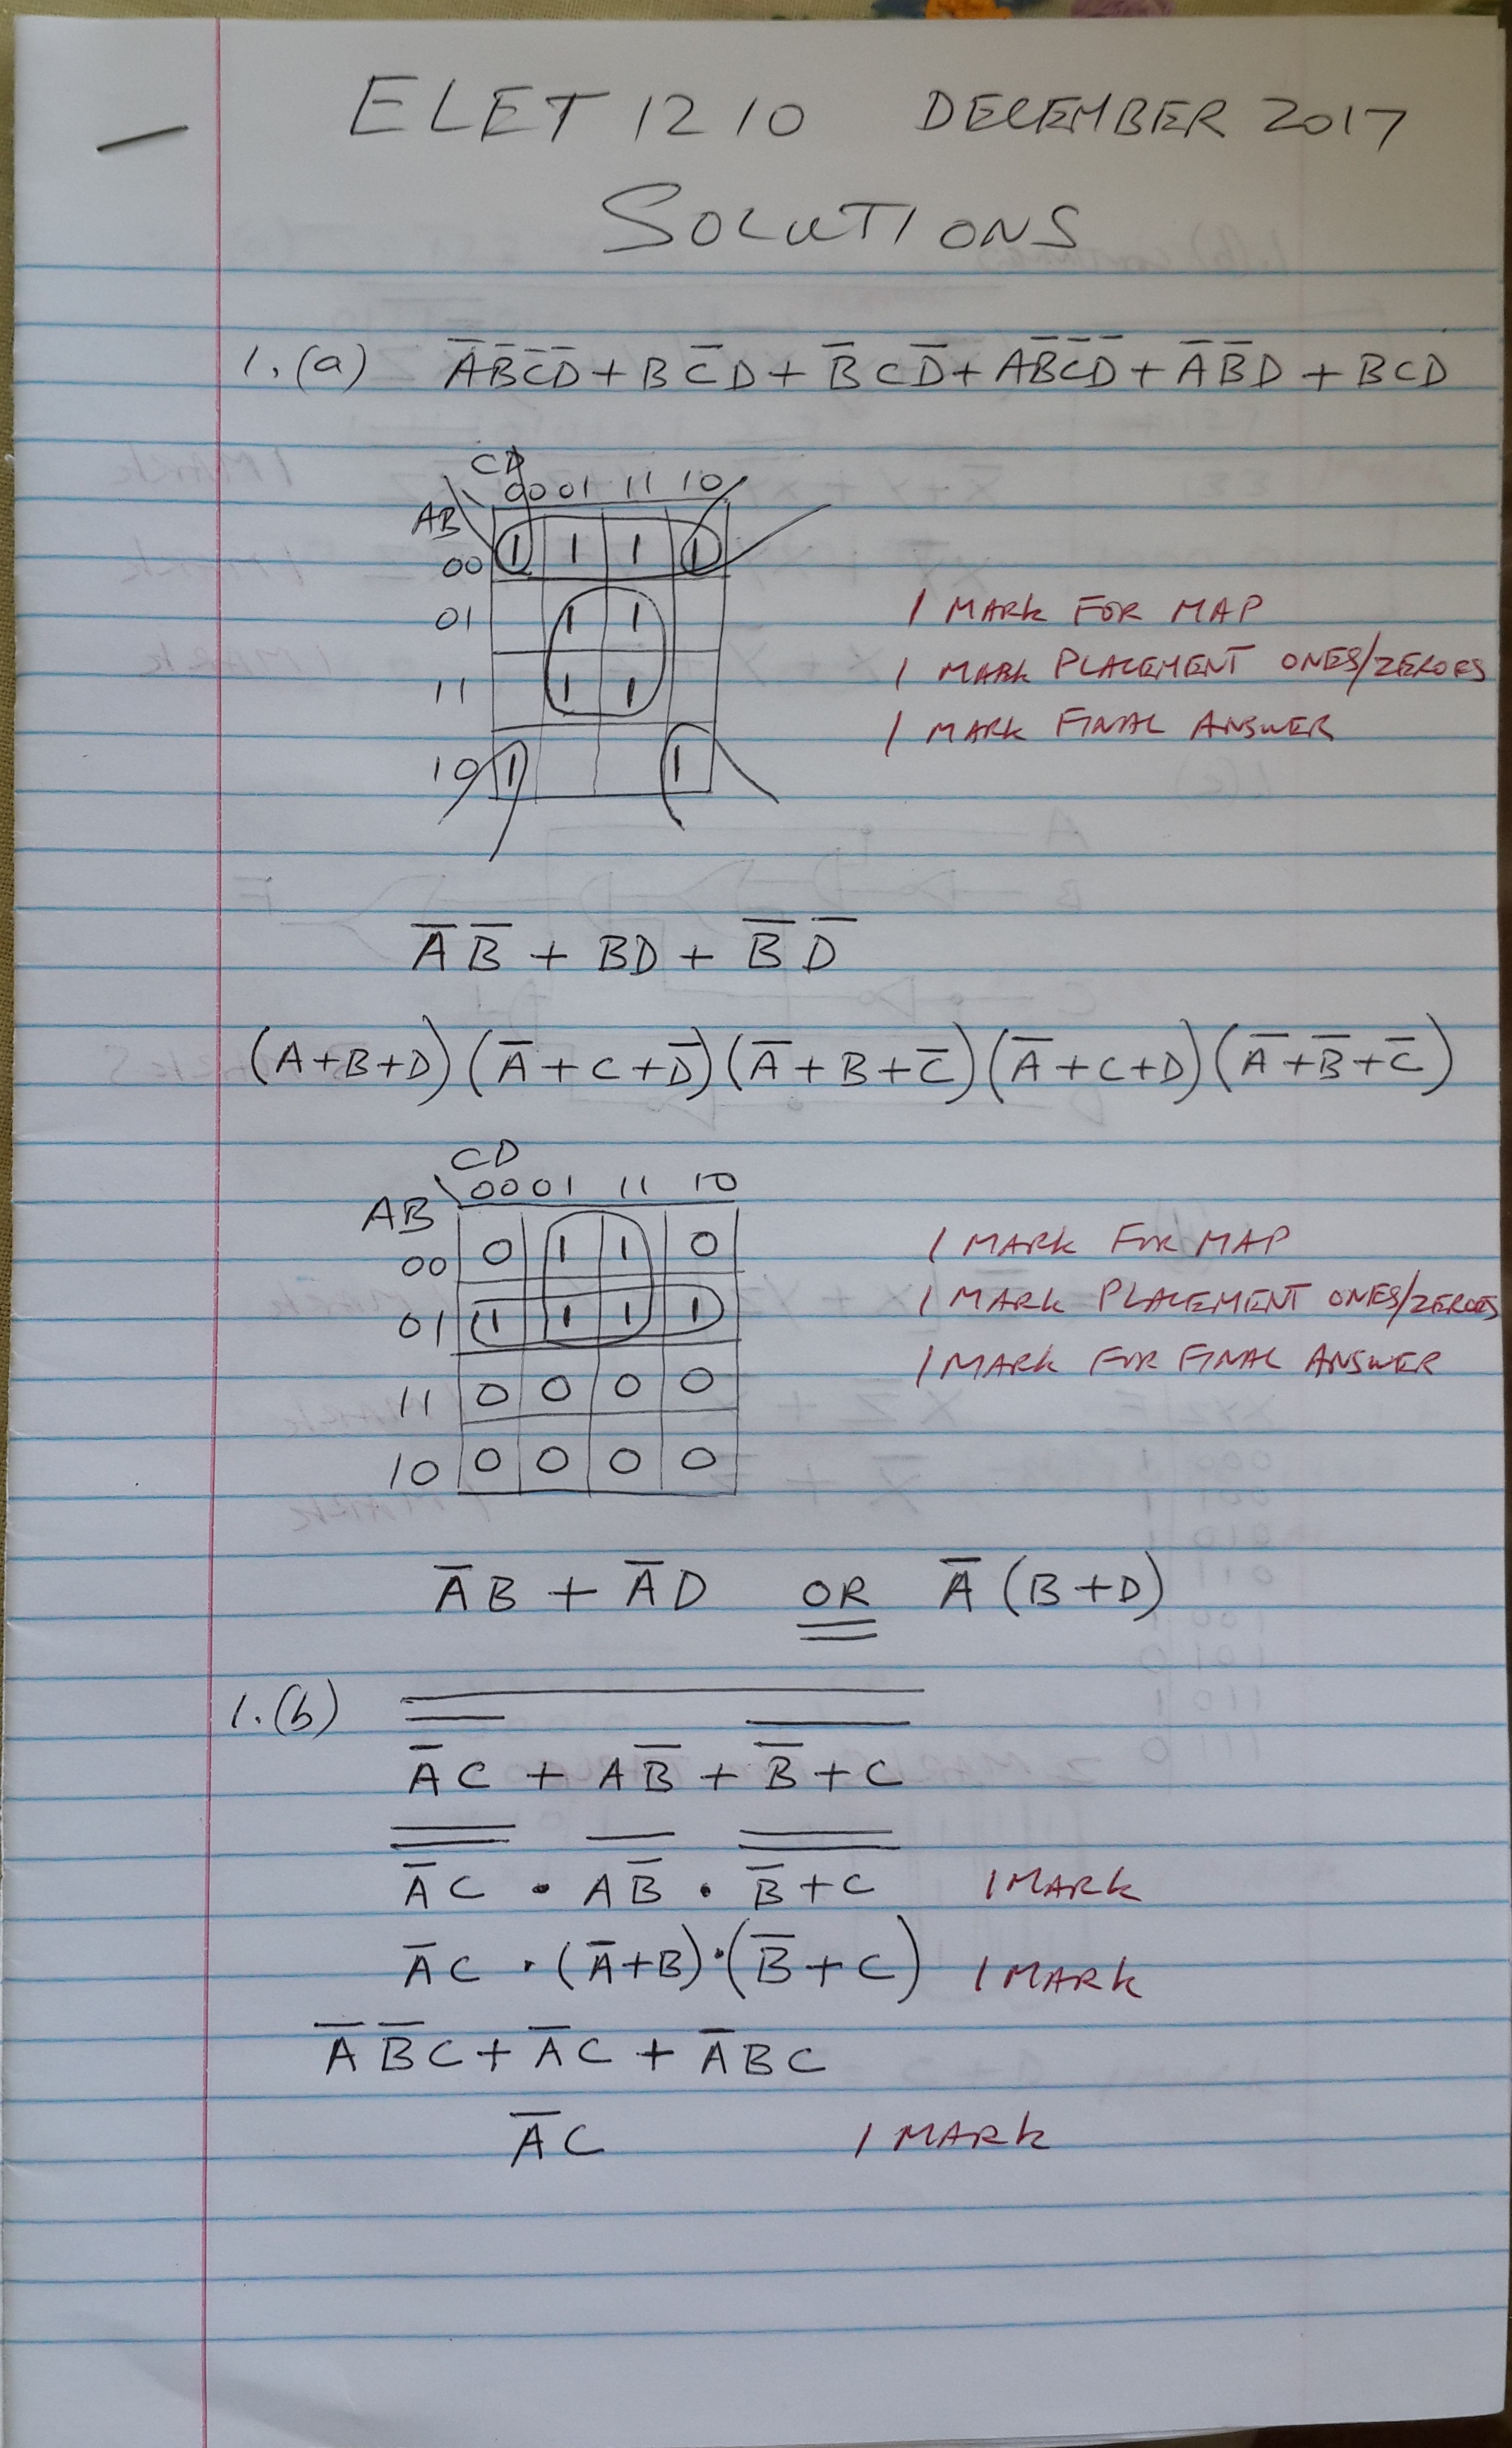 ELET 1210 DECEMBER 2017
SOLUTIONS
1.(a) A̅B̅C̅D̅ + BC̅D + B̅CD̅ + AB̅C̅D̅ + A̅B̅D + BCD
CD
00 01 11 10
AB
00 1 1 1 1
01 1 1
1 MARK FOR MAP
1 MARK PLACEMENT ONES/ZEROES
11 1 1
1 MARK FINAL ANSWER
10 1 1
A̅B̅ + BD + B̅D̅
(A+B+D)(A̅+C+D̅)(A̅+B+C̅)(A̅+C+D)(A̅+B̅+C̅)
CD
00 01 11 10
AB
00 0 1 1 0
1 MARK FOR MAP
01 1 1 1 1
1 MARK PLACEMENT ONES/ZEROES
1 MARK FOR FINAL ANSWER
11 0 0 0 0
10 0 0 0 0
A̅B + A̅D OR A̅(B+D)
1.(b)
A̅C + AB̅ + B̅+C
A̅C • AB̅ • B̅+C 1 MARK
A̅C • (A̅+B)•(B̅+C) 1 MARK
A̅B̅C + A̅C + A̅BC
A̅C 1 MARK